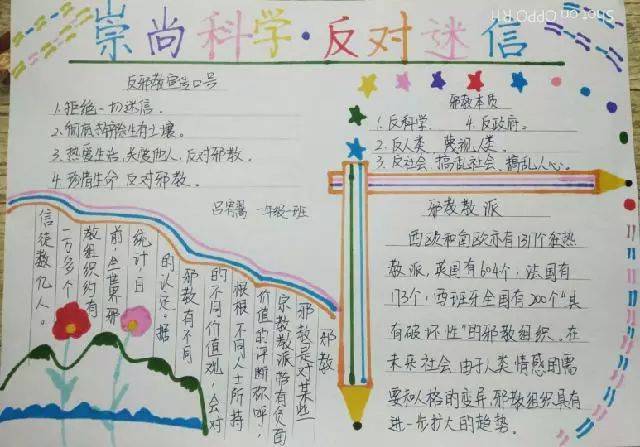 崇尚科学·反对迷信
Shot on OPPO R11
反邪教宣告口号
1.拒绝一切迷信。
2.彻底排除生存土壤。
3.热爱生活,关爱他人,反对邪教。
4.珍惜生命 反对邪教。
一年级一班
邪教本质
1.反科学 4.反政府。
2.反人类 蔑视人类。
3.反社会 搞乱社会、搞乱人心。
邪教教派
西欧和南欧亦有1317个狂热
教派,英国有604个;法国有
173个;西班牙全国有200个"具
有破坏性"的邪教组织。在
未来社会,由于人类情感的需
要和人格的变异,邪教组织具有
进一步扩大的趋势。
邪教
邪教是对某些
宗教教派带有负面
价值的评断称呼,
根据不同人士所持
的不同价值观,会对
邪教有不同
的认定。据
统计,目
前,全世界邪
教组织约有
一万多个
信徒数亿人。